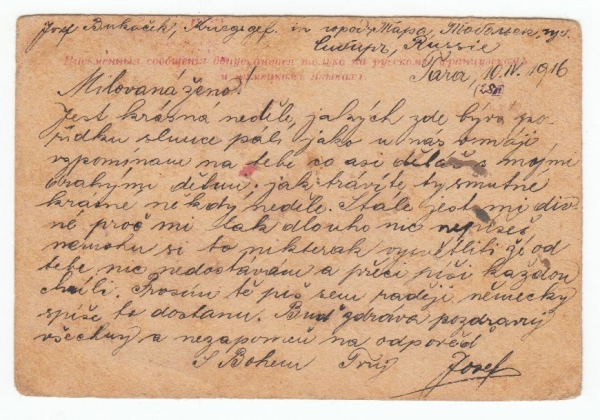 Josef Bukáček, Kriegsgef. in городъ Тара, Тобольск, губ.
Сибирь, Russie
Письменныя сообщенія допускаются только на русскомъ, французскомъ
и нѣмецкомъ языкахъ.
Tara, 10. IV. 1916
Milovaná ženo!
Jest krásná neděle, jakých zde bývá po
řídku slunce pálí jako u nás v máji
vzpomínam na tebe co asi děláš s mojmi
drahými dětmi, jak trávíte ty smutné
krásné někdy neděle. Stále jest mi div
né proč mi tak dlouho nic nepíšeš,
nemohu si to nikterak vysvětliti že od
tebe nic nedostávám a přeci píši každou
chvíli. Prosím tě piš sem raději německy
spíše to dostanu. Buď zdráva pozdravuj
všechny a nezapomeň na odpověď
S Bohem Tvůj Josef